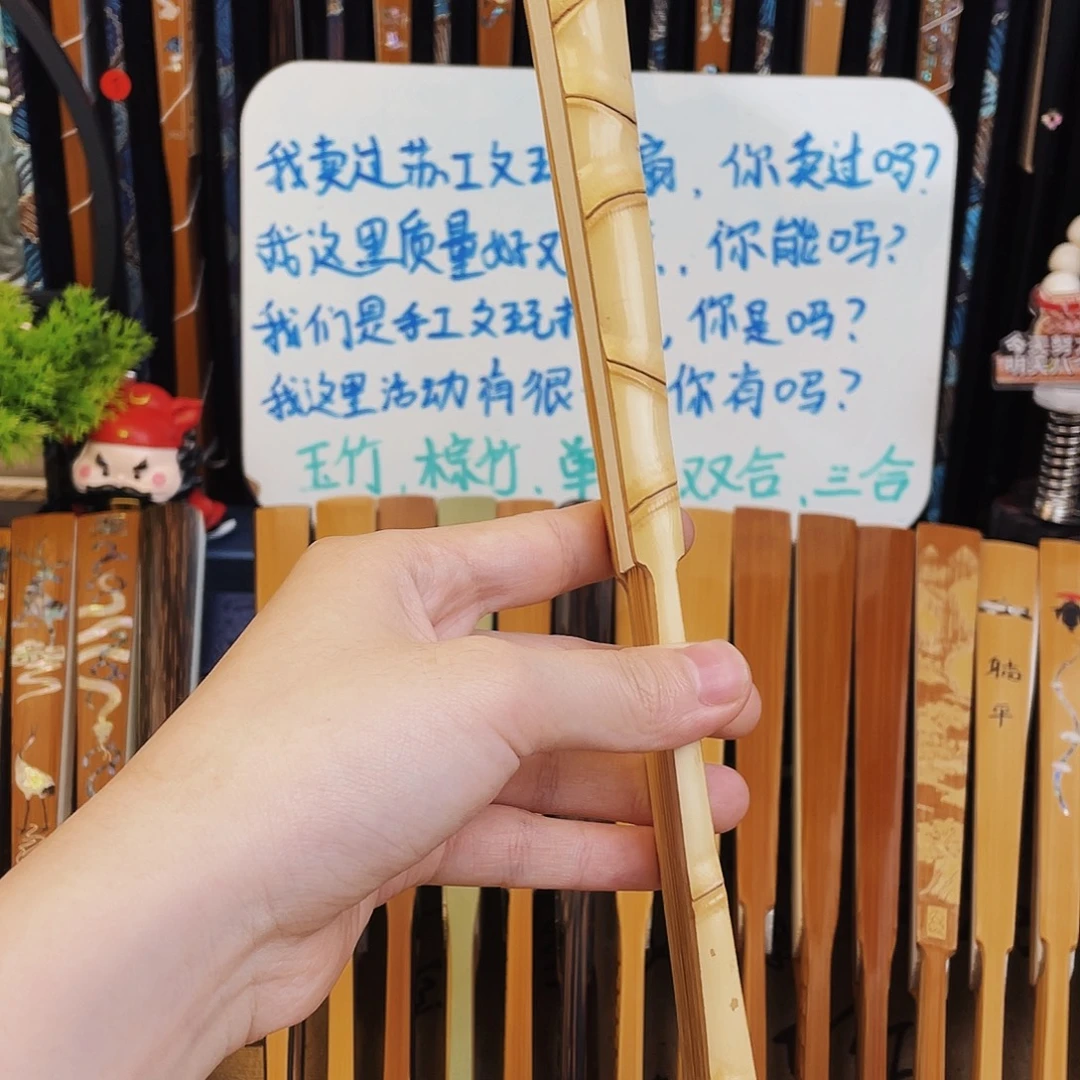 我卖过苏工文玩扇，你卖过吗？
我这里质量好又..你能吗？
我们是手工文玩，你是吗？
我这里活动有很你有吗？
玉竹.棕竹.单双合.三合
躺
平